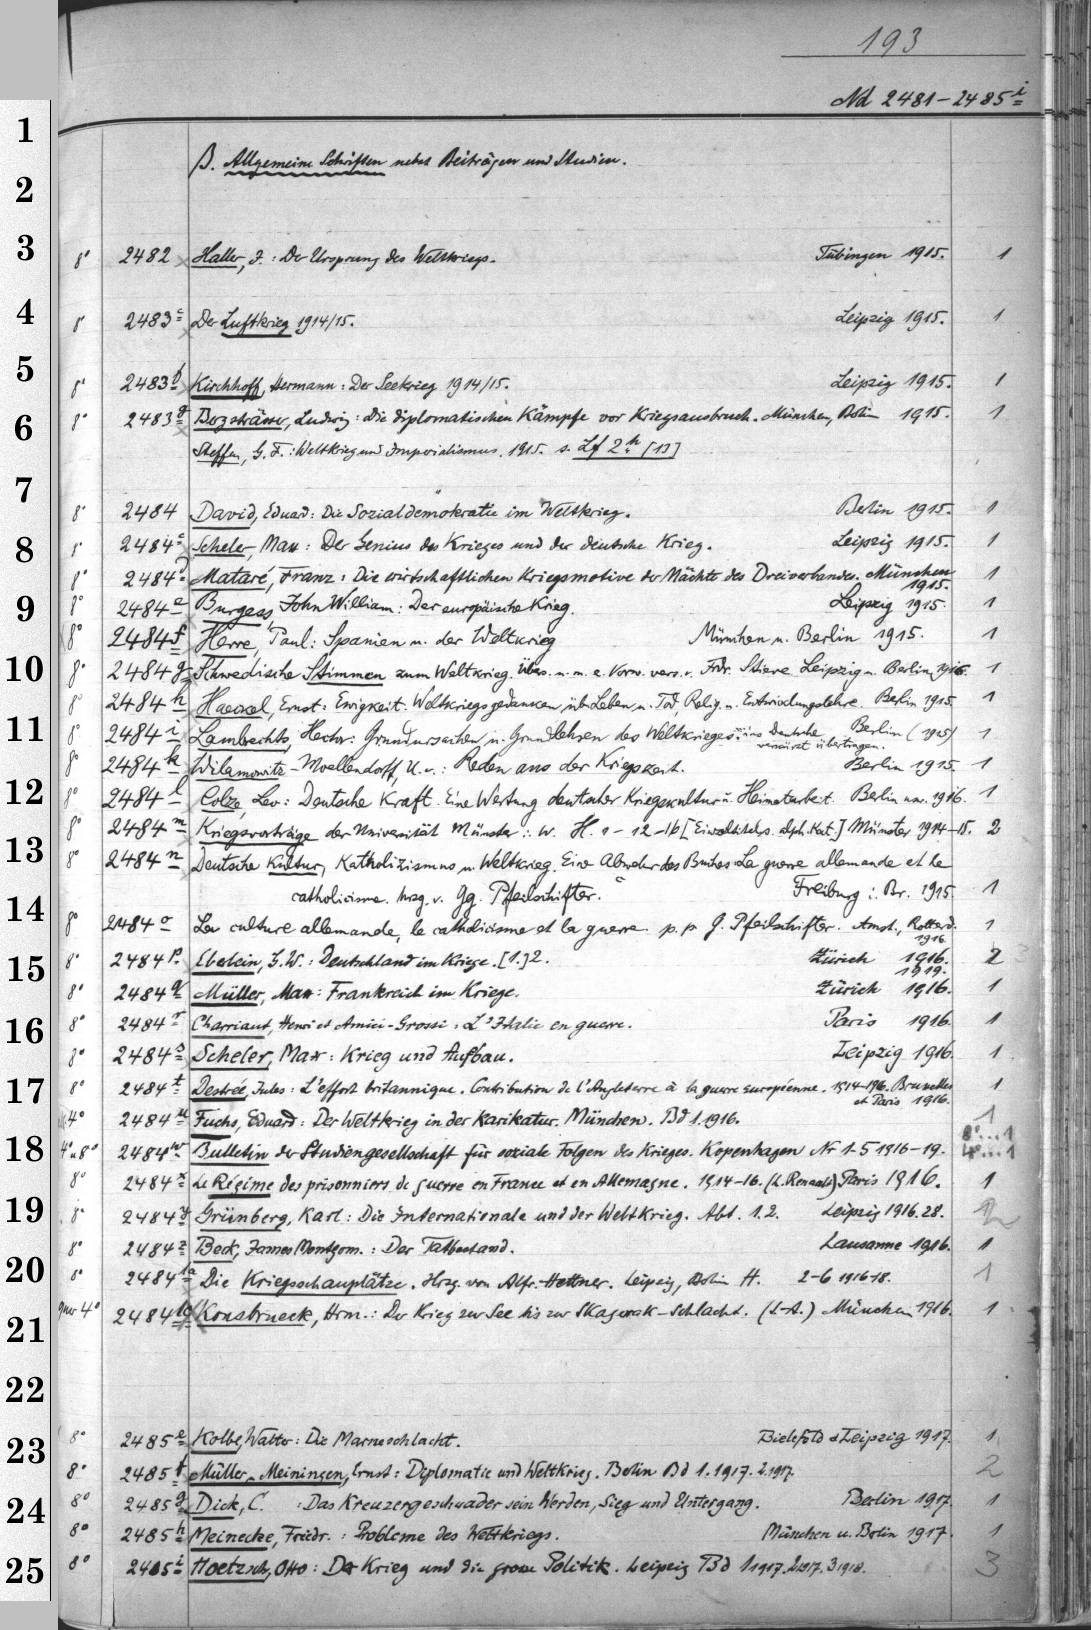 193
Nd 2481-2485 i
1
β. Allgemeine Schriften nebst Beiträgen und Studien.
2
3 8° 2482 Haller, J.: Der Ursprung des Weltkriegs. Tübingen 1915. 1
4 8° 2483 c Der Luftkrieg 1914/15. Leipzig 1915. 1
5 8° 2483 f Kirchhoff, Hermann: Der Seekrieg 1914/15. Leipzig 1915. 1
6 8° 2483 g Bergsträsser, Ludwig: Die diplomatischen Kämpfe vor Kriegsausbruch. München, Berlin 1915. 1
Steffen, G. F.: Weltkrieg und Imperialismus. 1915. s. Lf 2 h [13]
7
8° 2484 David, Eduard: Die Sozialdemokratie im Weltkrieg. Berlin 1915. 1
8 8° 2484 c Scheler, Max: Der Genius des Krieges und der deutsche Krieg. Leipzig 1915. 1
8° 2484 d Mataré, Franz: Die wirtschaftlichen Kriegsmotive der Mächte des Dreiverbandes. München 1915. 1
9 8° 2484 e Burgess, John William: Der europäische Krieg. Leipzig 1915. 1
8° 2484 f Herre, Paul: Spanien u. der Weltkrieg München u. Berlin 1915. 1
10 8° 2484 g Schwedische Stimmen zum Weltkrieg. Übers. u. m. e. Vorw. vers. v. Frdr. Stieve Leipzig u. Berlin 1916. 1
8° 2484 h Haeckel, Ernst: Ewigkeit. Weltkriegsgedanken üb. Leben u. Tod, Relig. u. Entwicklungslehre. Berlin 1915. 1
11 8° 2484 i Lambrechts, Hector: Grundursachen u. Grundlehren des Weltkrieges. ins Deutsche übertragen. Berlin (1915) 1
8° 2484 k Wilamowitz-Moellendorff, U. v.: Reden aus der Kriegszeit. Berlin 1915. 1
12 8° 2484 l Colze, Leo: Deutsche Kraft. Eine Wertung deutscher Kriegskultur u. Heimatarbeit. Berlin usw. 1916. 1
8° 2484 m Kriegsvorträge der Universität Münster i. W. H. 1-12-16 [Einzeltitel s. alph. Kat.] Münster 1914-15. 2
13 8° 2484 n Deutsche Kultur, Katholizismus u. Weltkrieg. Eine Abwehr des Buches La guerre allemande et le
catholicisme. hrsg. v. Gg. Pfeilschifter. Freiburg i. Br. 1915. 1
14 8° 2484 o La culture allemande, le catholicisme et la guerre p. p. G. Pfeilschifter. Amst., Rotterd. 1916. 1
15 8° 2484 p Eberlein, G. W.: Deutschland im Kriege. [1.] 2. Zürich 1916. 1919. 2
8° 2484 q Müller, Max: Frankreich im Kriege. Zürich 1916. 1
16 8° 2484 r Charriaut, Henri et Amici-Grossi: L'Italie en guerre. Paris 1916. 1
8° 2484 s Scheler, Max: Krieg und Aufbau. Leipzig 1916. 1
17 8° 2484 t Destrée, Jules: L'effort britannique. Contribution de l'Angleterre à la guerre européenne. 1914-1916. Bruxelles et Paris 1916. 1
4° 2484 u Fuchs, Eduard: Der Weltkrieg in der Karikatur. München. Bd 1. 1916. 1
18 4° u 8° 2484 w Bulletin der Studiengesellschaft für soziale Folgen des Krieges. Kopenhagen Nr 1-5 1916-19. 8°...1 4°...1
8° 2484 x Le Régime des prisonniers de guerre en France et en Allemagne. 1914-16. (L. Renault) Paris 1916. 1
19 8° 2484 y Grünberg, Karl: Die Internationale und der Weltkrieg. Abt. 1.2. Leipzig 1916. 28. 2
8° 2484 z Beck, James Montgom.: Der Tatbestand. Lausanne 1916. 1
20 8° 2484 1a Die Kriegsschauplätze. Hrsg. von Alfr. Hettner. Leipzig, Berlin H. 2-6 1916-18. 1
21 quer 4° 2484 Konsbrueck, Hrm.: Der Krieg zur See bis zur Skagerak-Schlacht. (S-A.) München 1916. 1
22
23 8° 2485 e Kolbe, Walter: Die Marneschlacht. Bielefeld & Leipzig 1917. 1
8° 2485 f Müller-Meiningen, Ernst: Diplomatie und Weltkrieg. Berlin Bd 1. 1917. 2. 1917. 2
24 8° 2485 g Dick, C. : Das Kreuzergeschwader sein Werden, Sieg und Untergang. Berlin 1917. 1
8° 2485 h Meinecke, Friedr.: Probleme des Weltkriegs. München u. Berlin 1917. 1
25 8° 2485 i Hoetzsch, Otto: Der Krieg und die grosse Politik. Leipzig Bd 1 1917. 2 1917. 3 1918. 3